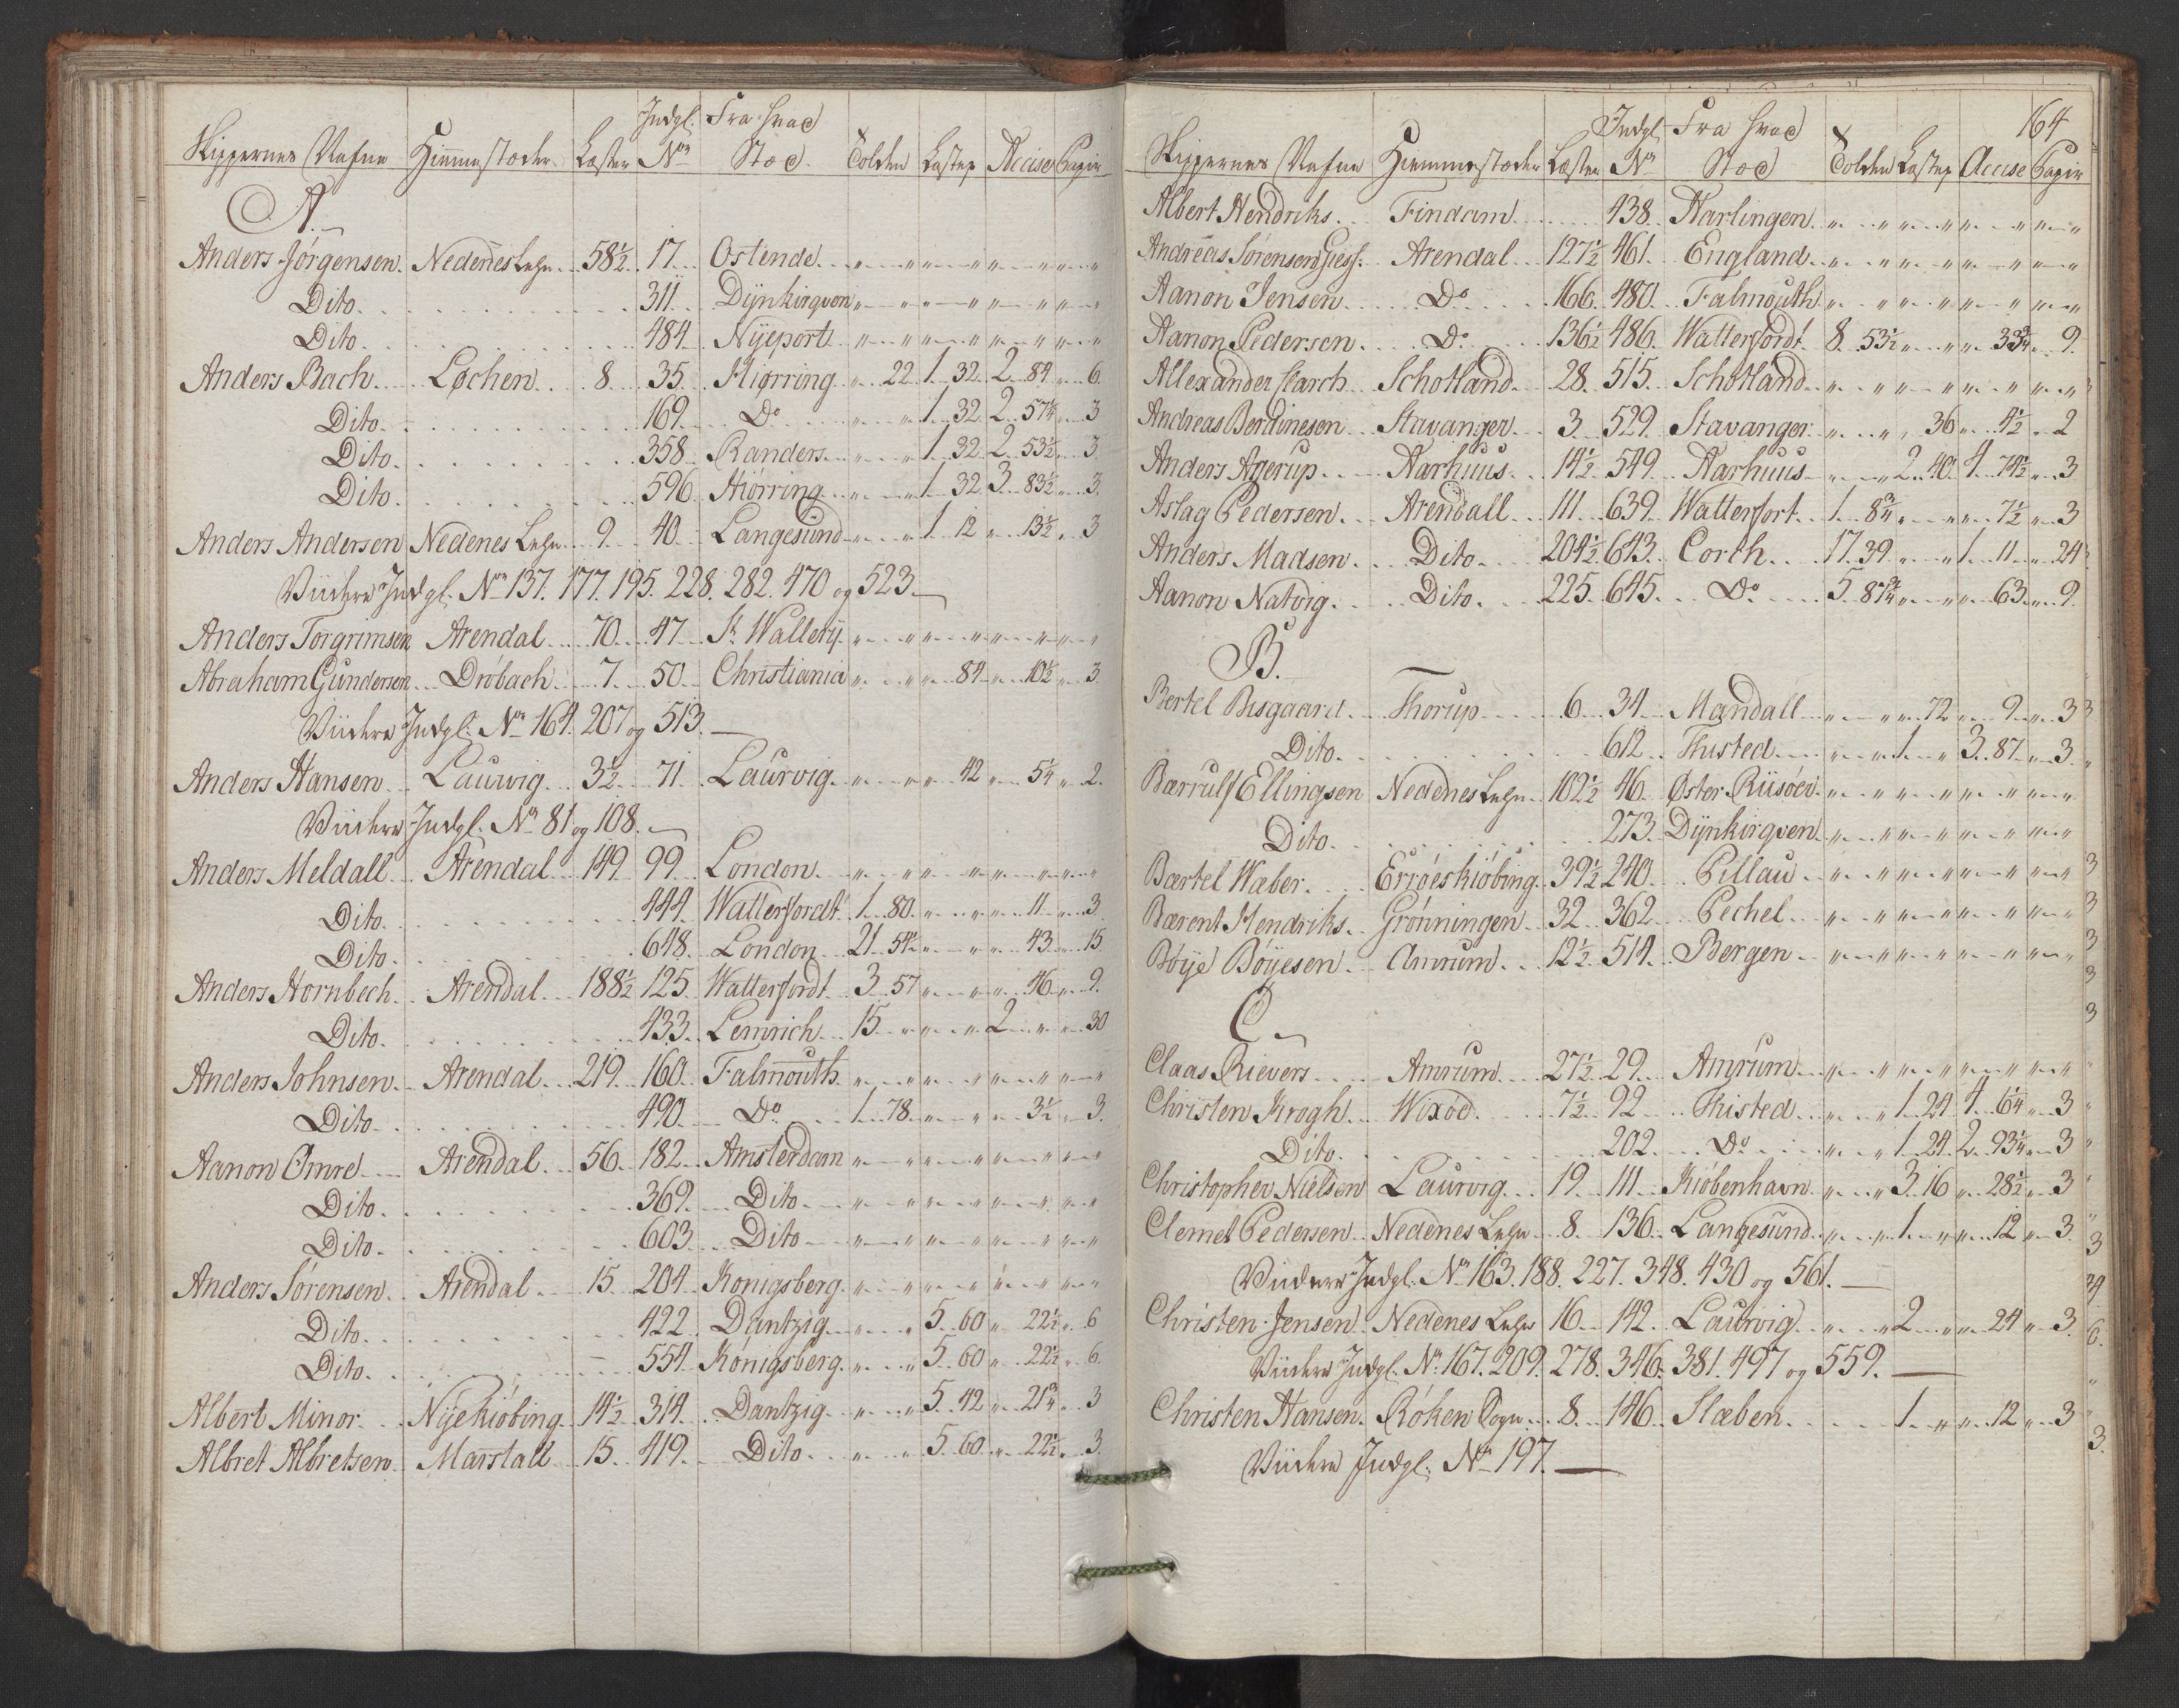 Skippernes Nafne Hiemmestæder Læster Indgl. No Fra hvad Stæd Tolden Lastep Accise Papir
A.
Anders Jørgensen Nedenes Lehn 58½ 17 Ostende " " " " " " " "
Dito 311 Dÿnkirqven " " " " " " " "
Dito 484 Nÿeport " " " " " " " "
Anders Bach Løchen 8 35 Hiørring " 22 1 32 2 84 " 6
Dito 169 Do " " 1 32 2 57¼ " 3
Dito 358 Randers " " 1 32 2 53½ " 3
Dito 596 Hiørring " " 1 32 3 83½ " 3
Anders Andersen Nedenes Lehn 9 40 Langesund " " 1 12 " 13½ " 3
Viidere Indgl. No 137. 177. 195. 228. 282. 470 og 523.
Anders Torgrimsen Arendal 70 47 St Wallerÿ " " " " " " " "
Abraham Gundersen Drøbach 7 50 Christiania " " " 84 " 10½ " 3
Viidere Indgl. No 164. 207 og 513.
Anders Hansen Laurvig 3½ 71 Laurvig " " " 42 " 5¼ " 2
Viidere Indgl. No 81 og 108.
Anders Meldall Arendal 149 99 London " " " " " " " "
Dito 444 Watterfordt 1 80 " " " 11 " 3
Dito 648 London 21 54½ " " " 43 " 15
Anders Hornbech Arendal 188½ 125 Watterfordt 3 57 " " " 46 " 9
Dito 433 Lemrich 15 " " " 2 " " 30
Anders Johnsen Arendal 219 160 Falmouth " " " " " " " "
Dito 490 Do 1 78 " " " 3½ " 3
Aanon Omre Arendal 56 182 Amsterdam " " " " " " " "
Dito 369 Dito " " " " " " " "
Dito 603 Dito " " " " " " " "
Anders Sørensen Arendal 15 204 Konigsberg " " " " " " " "
Dito 422 Dantzig " " 5 60 " 22½ " 6
Dito 554 Königsberg " " 5 60 " 22½ " 6
Albert Minor Nÿekiøbing 14½ 314 Dantzig " " 5 42 " 21¾ " 3
Albret Albretsen Marstall 15 419 Dito " " 5 60 " 22½ " 3
164
Skippernes Nafne Hiemmestæder Læster Indgl. No Fra hvad Stæd Tolden Lastep Accise Papir
Albert Hendriks Findam 438 Harlingen " " " " " " " "
Andreas Sørensen Giesf. Arendal 127½ 461 England " " " " " " " "
Aanon Jensen Do 166 480 Falmouth " " " " " " " "
Aanon Pedersen Do 136½ 486 Watterfordt 8 53½ " " " 33¾ " 9
Allexander Search Schotland 28 515 Schotland " " " " " " " "
Andreas Berdinesen Stavanger 3 529 Stavanger " " " 36 " 4½ " 2
Anders Agerup Aarhuus 14½ 549 Aarhuus " " 2 40 4 74½ " 3
Aslag Pedersen Arendall 111 639 Watterfort 1 8¾ " " " 7½ " 3
Anders Madsen Dito 204½ 643 Corch 17 39 " " 1 11 " 24
Aanon Natvig Dito 225 645 Do 5 87¾ " " " 63 " 9
B.
Bertel Bisgaard Thorup 6 34 Mandall " " " 72 " 9 " 3
Dito 612 Thisted " " 1 " 3 87 " 3
Bærrulf Ellingsen Nedenes Lehn 102½ 46 Øster Riisøer " " " " " " " "
Dito 273 Dÿnkirqven " " " " " " " "
Bærtel Wæber Erröeskiøbing 39½ 240 Pillau " " " " " " " "
Bærent Hendriks Grønningen 32 362 Pechel " " " " " " " "
Bøÿe Bøÿesen Amrum 12½ 514 Bergen " " " " " " " "
C
Claas Rievers Amrum 27½ 29 Amrum " " " " " " " "
Christen Krogh Wixöe 7½ 92 Thisted " " 1 24 4 6¼ " 3
Dito 202 Do " " 1 24 2 93¼ " 3
Christopher Nielsen Laurvig 19 111 Kiøbenhavn " " 3 16 " 28½ " 3
Clemet Pedersen Nedenes Lehn 8 136 Langesund " " 1 " " 12 " 3
Viidere Indgl. No 163. 188. 227. 348. 430 og 561.
Christen Jensen Nedenes Lehn 16 142 Laurvig " " 2 " " 24 " 3
Viidere Indgl. No 167. 209. 278. 346. 381. 497 og 559.
Christen Hansen Røken Sogn 8 146 Slæben 1 " " 12 " 3
Viidere Indgl. No 197.